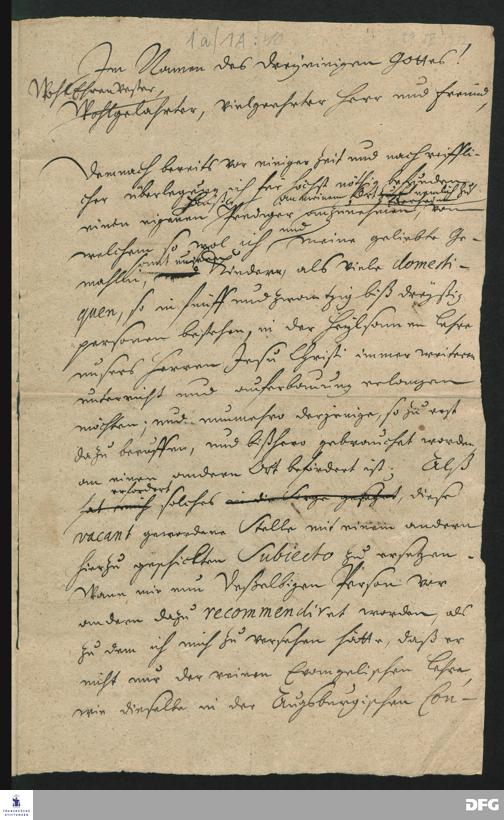 1a/1A:
Im Namen des dreyeinigen Gottes!
WohlEhrenvester,
Wohlgelahrter, vielgeehrter Herr und Freund,
Demnach bereits vor einiger Zeit und nach reiffli-
cher überlegung ich für höchst nöthig befunden
an meinem Ort
einen eigenen Prediger anzunehmen, von
welchem so wol ich und meine geliebte Ge-
mahlin, Kindern, als viele domesti-
quen, so in fünff und zwantzig biß dreyßig
personen bestehen, in der heylsamen Lehre
unsers Herren Jesu Christi immer weiteren
unterricht und auferbauung erlangen
möchten; und nunmehro derjenige, so zu erst
dazu beruffen, und bißhero gebrauchet worden
an einen andern Ort befördert ist: Alß
erfordert
hat mich solches in die Sorge gesetzet, diese
vacant gewordene Stelle mit einem andern
hierzu geschickten Subiecto zu ersetzen.
Wann mir nun deßelbigen Person vor
andern dazu recommendiret worden, als
zu dem ich mich zu versehen hätte, daß er
nicht nur der reinen Evangelischen Lehre,
wie dieselbe in der Augsburgischen Con-
FRANCKESCHE
STIFTUNGEN
DFG